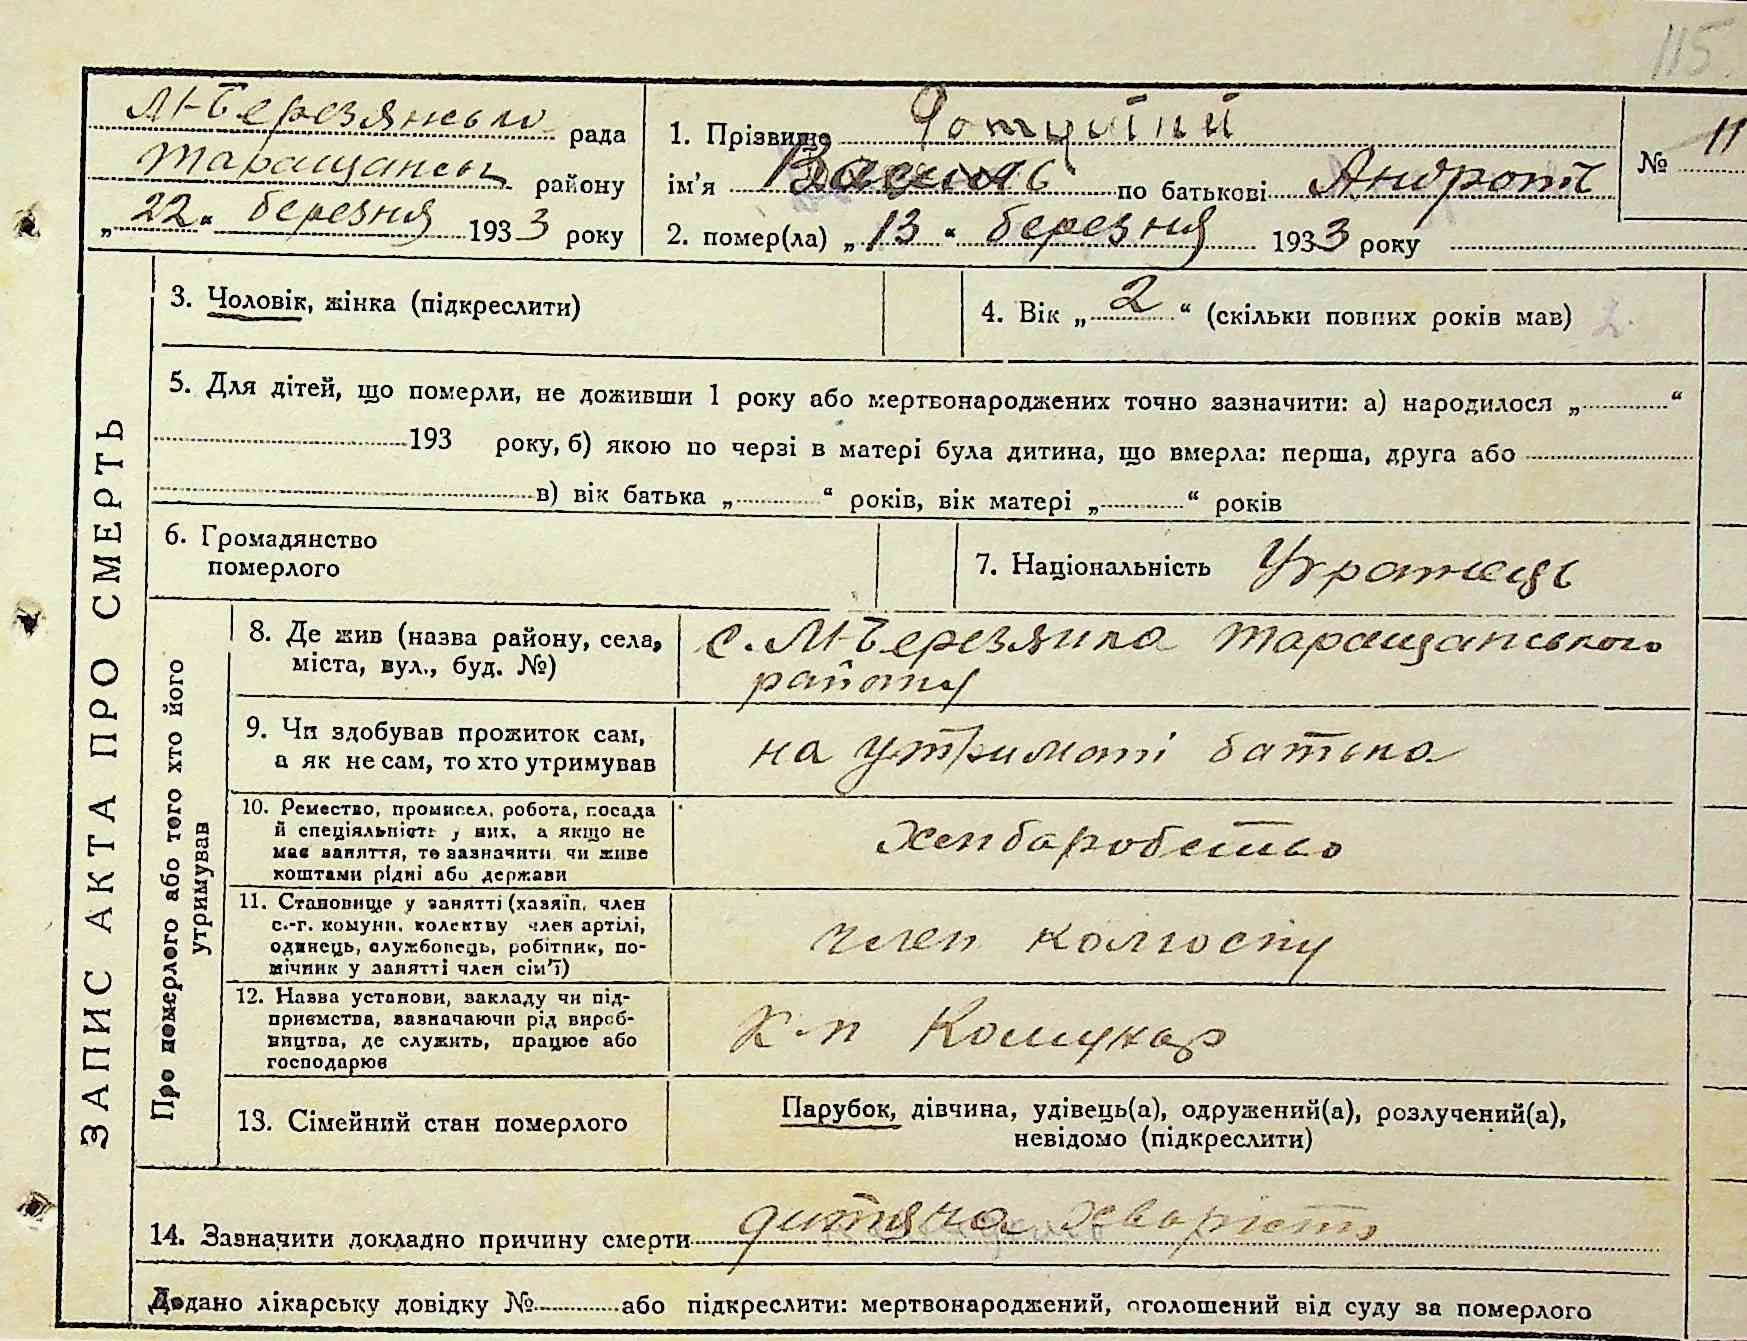 115
М-Березянсько рада
Таращанськ району
„22“ березня 1933 року
1. Прізвище
ім’я Василь по батькові Андрон
№ 11
2. помер(ла) „13“ березня 1933 року
ЗАПИС АКТА ПРО СМЕРТЬ
3. Чоловік, жінка (підкреслити)
4. Вік „2“ (скільки повних років мав) 2.
5. Для дітей, що померли, не доживши 1 року або мертвонароджених точно зазначити: а) народилося „ “
193 року, б) якою по черзі в матері була дитина, що вмерла: перша, друга або
в) вік батька „ “ років, вік матері „ “ років
6. Громадянство
померлого
7. Національність Українець
Про померлого або того хто його
утримував
8. Де жив (назва району, села,
міста, вул., буд. №)
с. М-Березянка Таращанського
району
9. Чи здобував прожиток сам,
а як не сам, то хто утримував
на утримані батька
10. Ремество, промисел, робота, посада
й спеціяльність у них, а якщо не
має заняття, то зазначити чи живе
коштами рідні або держави
хліборобство
11. Становище у занятті (хазяїн, член
с.-г. комуни, колективу член артілі,
одинець, службовець, робітник, по-
мічник у занятті член сім’ї)
член колгоспу
12. Назва установи, закладу чи під-
приємства, зазначаючи рід вироб-
ництва, де служить, працює або
господарює
к-п Комунар
13. Сімейний стан померлого
Парубок, дівчина, удівець(а), одружений(а), розлучений(а),
невідомо (підкреслити)
14. Зазначити докладно причину смерти дитяча хварість
Додано лікарську довідку № або підкреслити: мертвонароджений, оголошений від суду за померлого